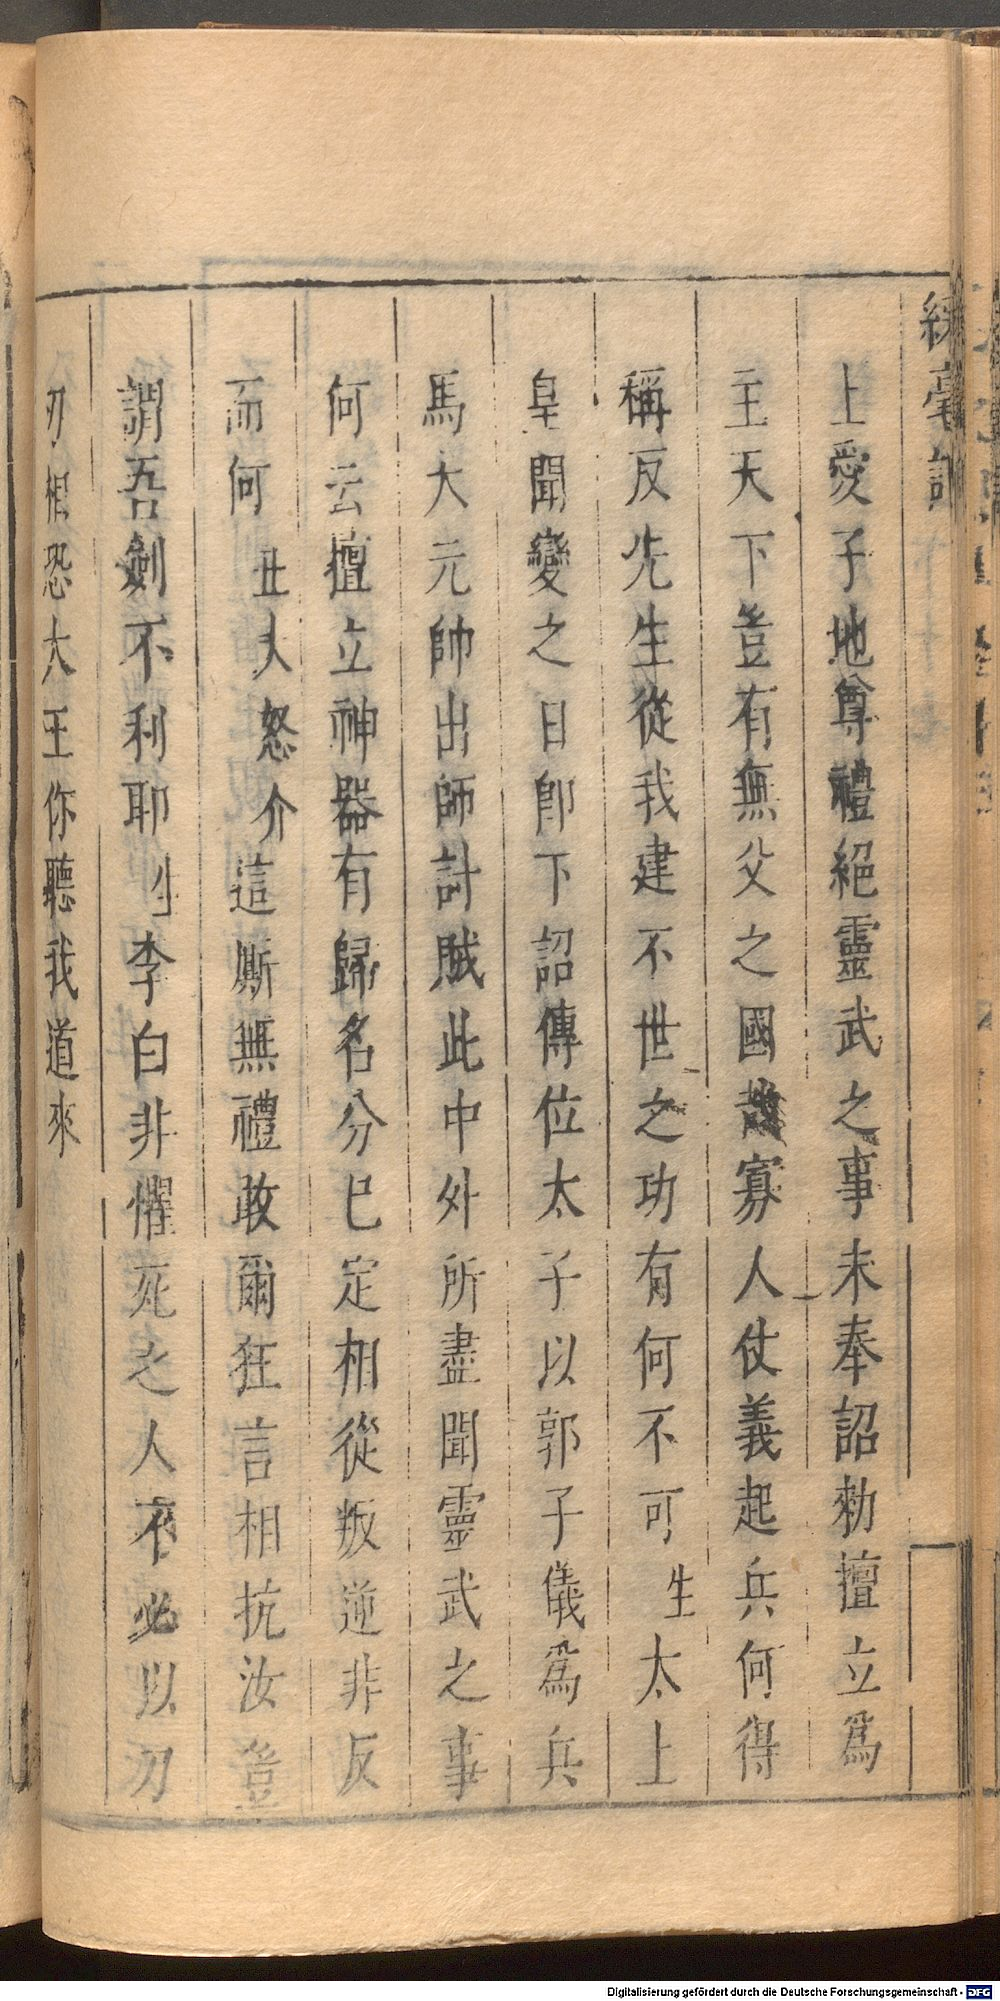 綵毫記
上愛子地尊禮絕靈武之事未奉詔勑擅立爲
主天下豈有無父之國哉寡人仗義起兵何得
稱反先生從我建不世之功有何不可生太上
皇聞變之日卽下詔傳位太子以郭子儀爲兵
馬大元帥出師討賊此中外所盡聞靈武之事
何云擅立神器有歸名分已定相從叛逆非反
而何丑大怒介這厮無禮敢爾狂言相抗汝豈
謂吾劍不利耶生李白非懼死之人不必以刃
刃相恐大王你聽我道來
Digitalisierung gefördert durch die Deutsche Forschungsgemeinschaft - DFG